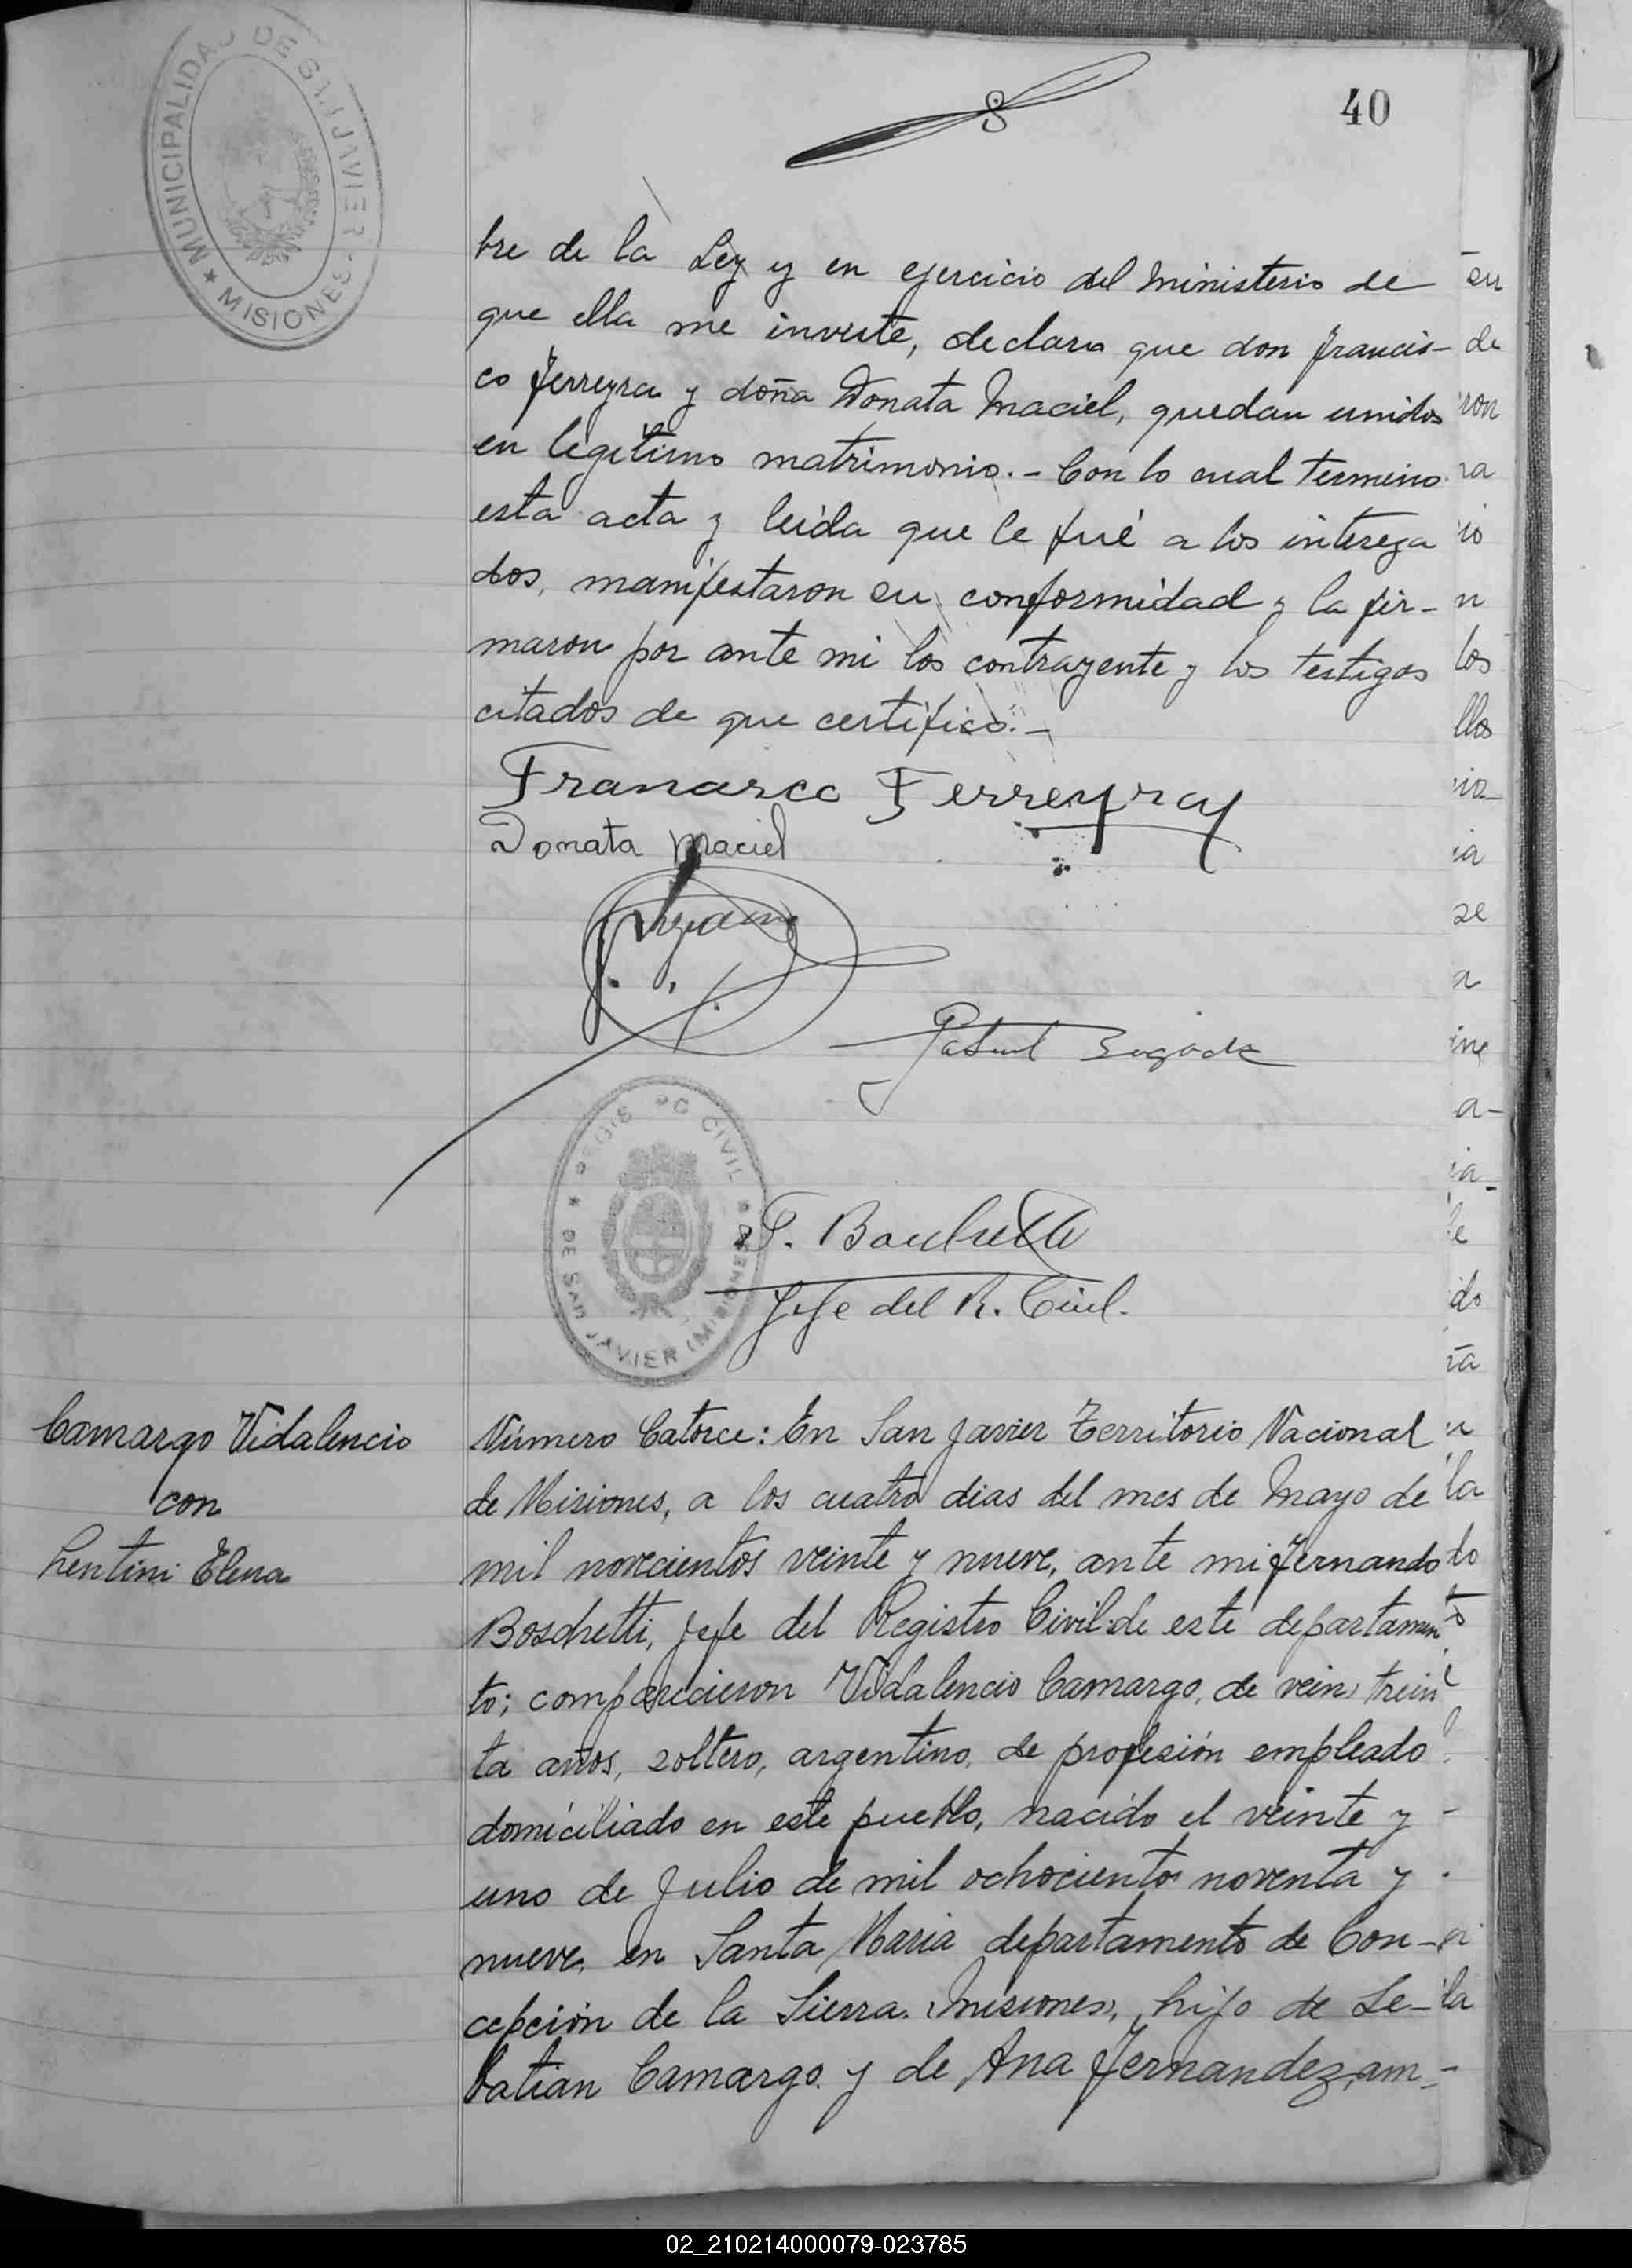 MUNICIPALIDAD DE SAN JAVIER - MISIONES
40
bre de la Ley y en ejercicio del Ministerio de
que ella me inviste, declaro que don Francis-
co Ferreyra y doña Donata Maciel, quedan unidos
en legítimo matrimonio.- Con lo cual termino
esta acta y leida que le fué a los interesa
dos, manifestaron su conformidad y la fir-
maron por ante mi los contrayente y los testigos
citados de que certifico.-
Francisco Ferreyra
Donata Maciel
F. Boschetti
Jefe del R. Civil.
REGISTRO CIVIL
DE SAN JAVIER (MISIONES)
Camargo Vidalencio
con
Lentini Elena
Número Catorce: En San Javier Territorio Nacional
de Misiones, a los cuatro dias del mes de Mayo de
mil novecientos veinte y nueve, ante mi Fernando
Boschetti, Jefe del Registro Civil de este departamen
to; comparecieron Vidalencio Camargo, de vein trein
ta años, soltero, argentino, de profesión empleado
domiciliado en este pueblo, nacido el veinte y
uno de Julio de mil ochocientos noventa y
nueve, en Santa Maria departamento de Con-
cepción de la Sierra. Misiones, hijo de Se-
batian Camargo y de Ana Fernandez, am-
su
de
ron
ra
io
n
los
llos
ia
se
a
a-
ia-
le
do
ta
la
lo
to
la
02_210214000079-023785